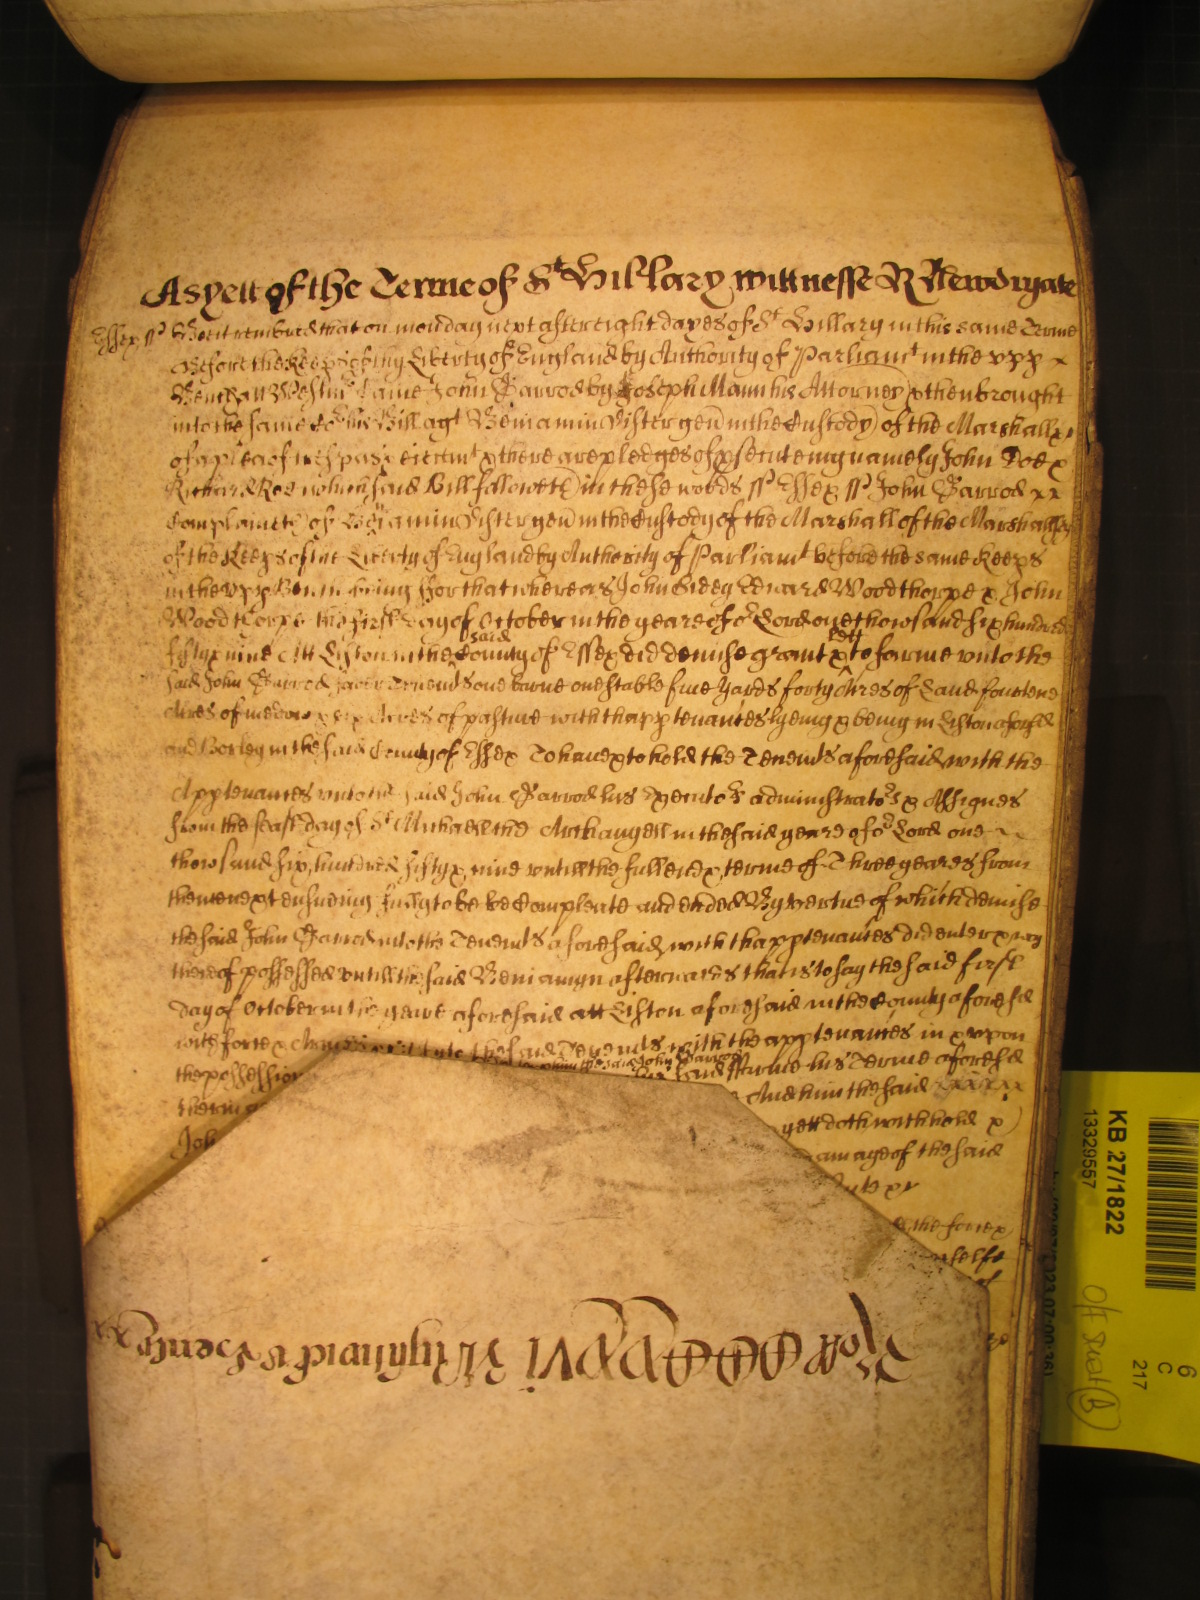 As yett of the Terme of St Hillary wittnesse R Newdigate
Essex ss Bee it remembred that on monday next after eight dayes of St Hillary in this same Terme
Before the Keeps of the Liberty of England by Authority of Parliamt in the vpp x
Bench att Westmr came John Parrod by Joseph Mann his Attorney & then brought
into the same Cot his Bill agt Beniamin ffister gen in the Custody of the Marshall &c
of a plea of trespas & eiectmt & there are pledges of psecuteing namely John Doe &
Richard Roe which said Bill followeth in these words ss Essex ss John Parrod xx
Complaineth of Beniamin ffister gen in the Custody of the Marshall of the Marshallsey
of the Keeps of the Liberty of England by Authority of Parliamt before the same Keeps
in the vpp Bench being ffor that whereas John Edward Woodthorpe & John
Woodthorpe the first day of October in the yeare of or Lord one thowsand six hundred
fifty & nine Att Liston in the said County of Essex did demise grant & to farme lett vnto the
said John Parrod Tenemts one barne one stable five yards forty Acres of Land fourteene
Acres of medow & six Acres of pasture with thapptenances lyeing & being in Liston aforesd
and Borley in the said County of Essex To haue & to hold the Tenemts aforesaid with the
Apptenances vnto the said John Parrod his Executors administrators & Assignes
from the feast day of St Michaell the Archangell in the said yeare of or Lord one
thowsand six hundred fifty & nine vntill the full end & terme of Three yeares from
thence next ensueing fully to be Compleate and ended By vertue of which demise
the said John Parrod into the Tenemts aforesaid with thapptenances did enter & was
thereof possessed vntill the said Beniamyn afterwards that is to say the said first
day of October in the yeare aforesaid att Liston aforesaid in the County aforesd
with force & Armes into the said Tenemts with the apptenances in & vpon
the possession the said John Parrod his Terme aforesd
therein And him the said xxxxx
Joh yett doth withhold &
damage of the said
sute &c
the force &
Roll CCCCxxxvi
KB 27/1822
13329557
6
C
217